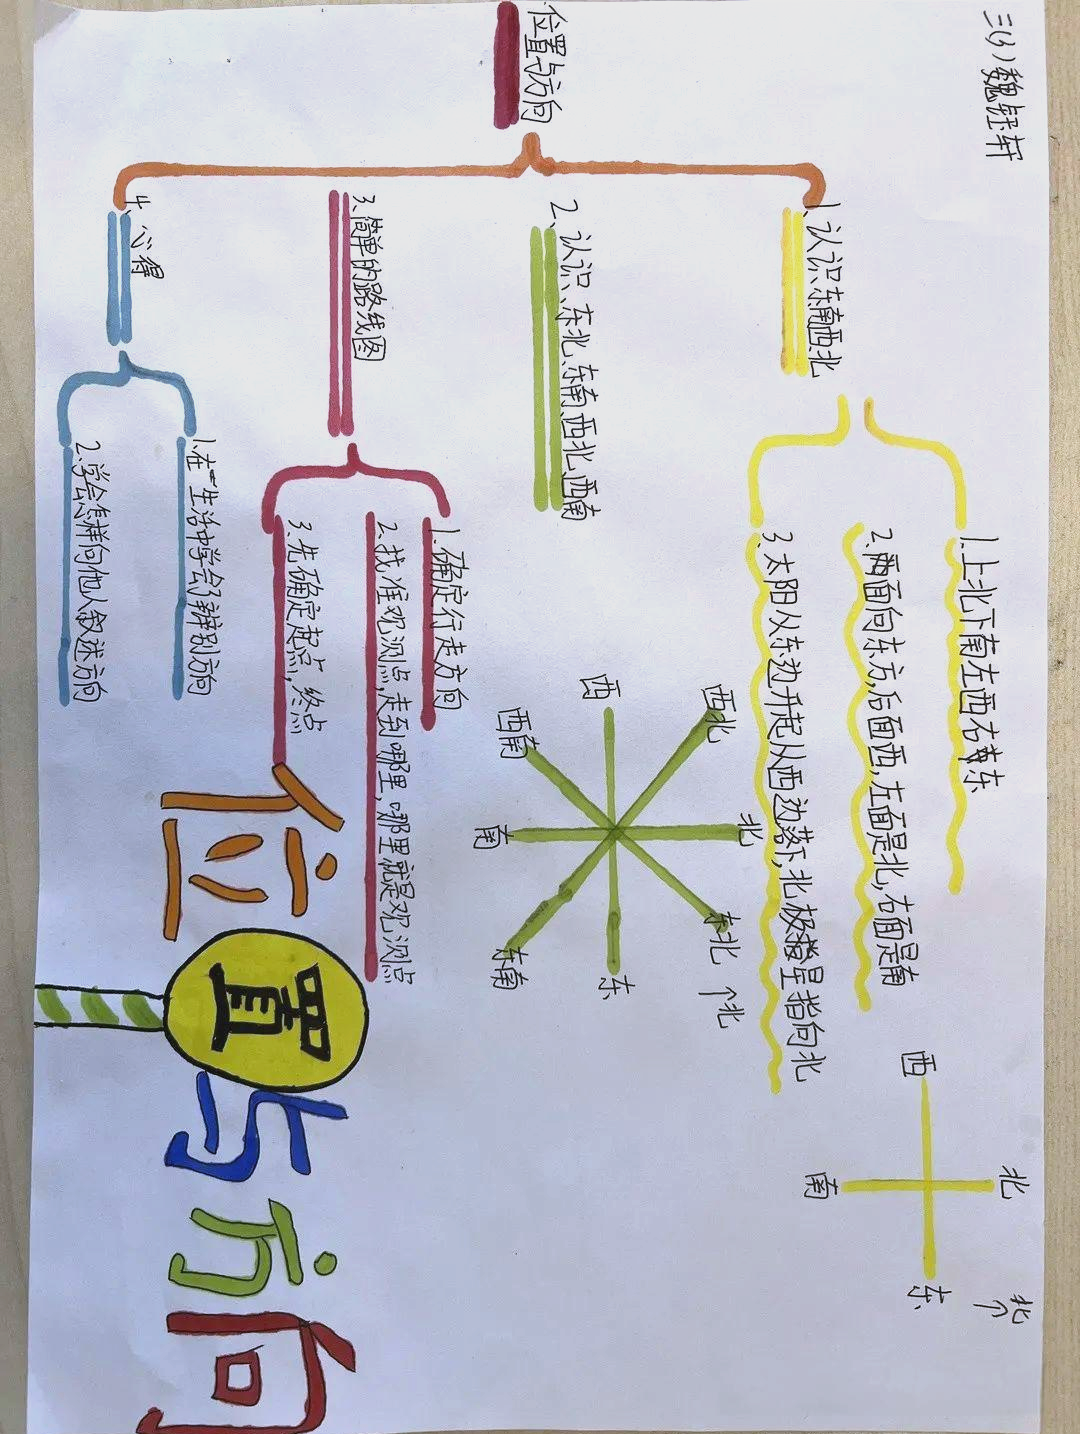 三(5)魏钰轩
位置与方向
1、认识东南西北
1.上北下南左西右东
2.两面向东方,后面西,左面是北,右面是南
3.太阳从东边升起从西边落下,北极星指向北
北
西
东
南
北
2、认识、东北、东南、西北、西南
西北
北
东北
西
东
西南
南
东南
北
3.简单的路线图
1.确定行走方向
2.找准观测点,走到哪里,哪里就是观测点
3.先确定起点,终点
4、心得
1.在生活中学会了辨别方向
2.学会怎样向他人叙述方向
位置与方向